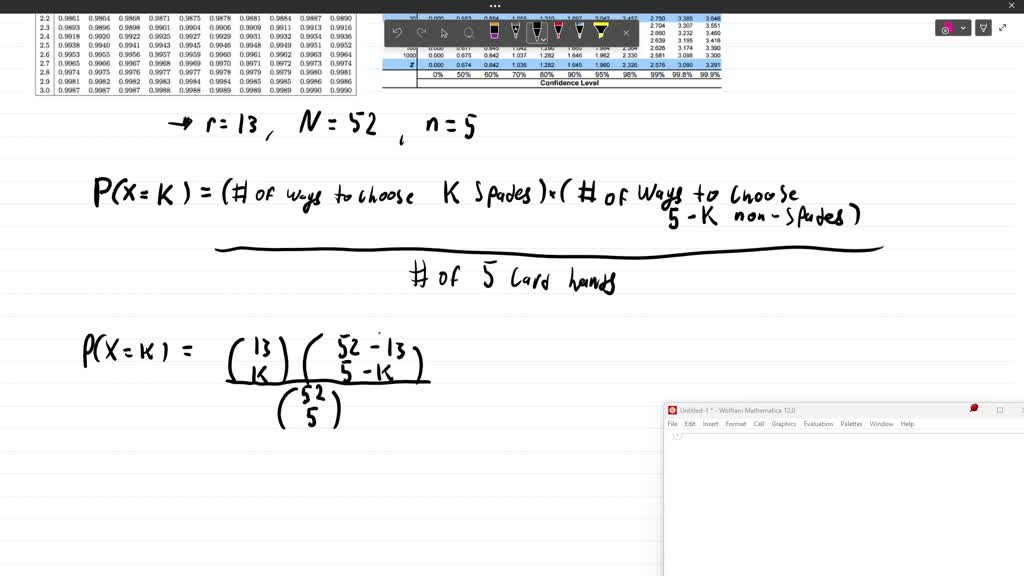 2.2 0.9861 0.9864 0.9868 0.9871 0.9875 0.9878 0.9881 0.9884 0.9887 0.9890
2.3 0.9893 0.9896 0.9898 0.9901 0.9904 0.9906 0.9909 0.9911 0.9913 0.9916
2.4 0.9918 0.9920 0.9922 0.9925 0.9927 0.9929 0.9931 0.9932 0.9934 0.9936
2.5 0.9938 0.9940 0.9941 0.9943 0.9945 0.9946 0.9948 0.9949 0.9951 0.9952
2.6 0.9953 0.9955 0.9956 0.9957 0.9959 0.9960 0.9961 0.9962 0.9963 0.9964
2.7 0.9965 0.9966 0.9967 0.9968 0.9969 0.9970 0.9971 0.9972 0.9973 0.9974
2.8 0.9974 0.9975 0.9976 0.9977 0.9977 0.9978 0.9979 0.9979 0.9980 0.9981
2.9 0.9981 0.9982 0.9982 0.9983 0.9984 0.9984 0.9985 0.9985 0.9986 0.9986
3.0 0.9987 0.9987 0.9987 0.9988 0.9988 0.9989 0.9989 0.9989 0.9990 0.9990
2.750 3.385 3.646
2.704 3.307 3.551
2.660 3.232 3.460
2.639 3.195 3.416
2.626 3.174 3.390
1000 0.000 0.675 0.842 1.037 1.282 1.646 1.962 2.330 2.581 3.098 3.300
Z 0.000 0.674 0.842 1.036 1.282 1.645 1.960 2.326 2.576 3.090 3.291
0% 50% 60% 70% 80% 90% 95% 98% 99% 99.8% 99.9%
Confidence Level
→ r=13, N=52, n=5
P(X=K) = (# of ways to choose K Spades)×(# of ways to choose
5-K non-Spades)
# of 5 Card hands
P(X=K) = (13 K) (52-13 5-K)
(52 5)
Untitled-1 * - Wolfram Mathematica 12.0
File Edit Insert Format Cell Graphics Evaluation Palettes Window Help